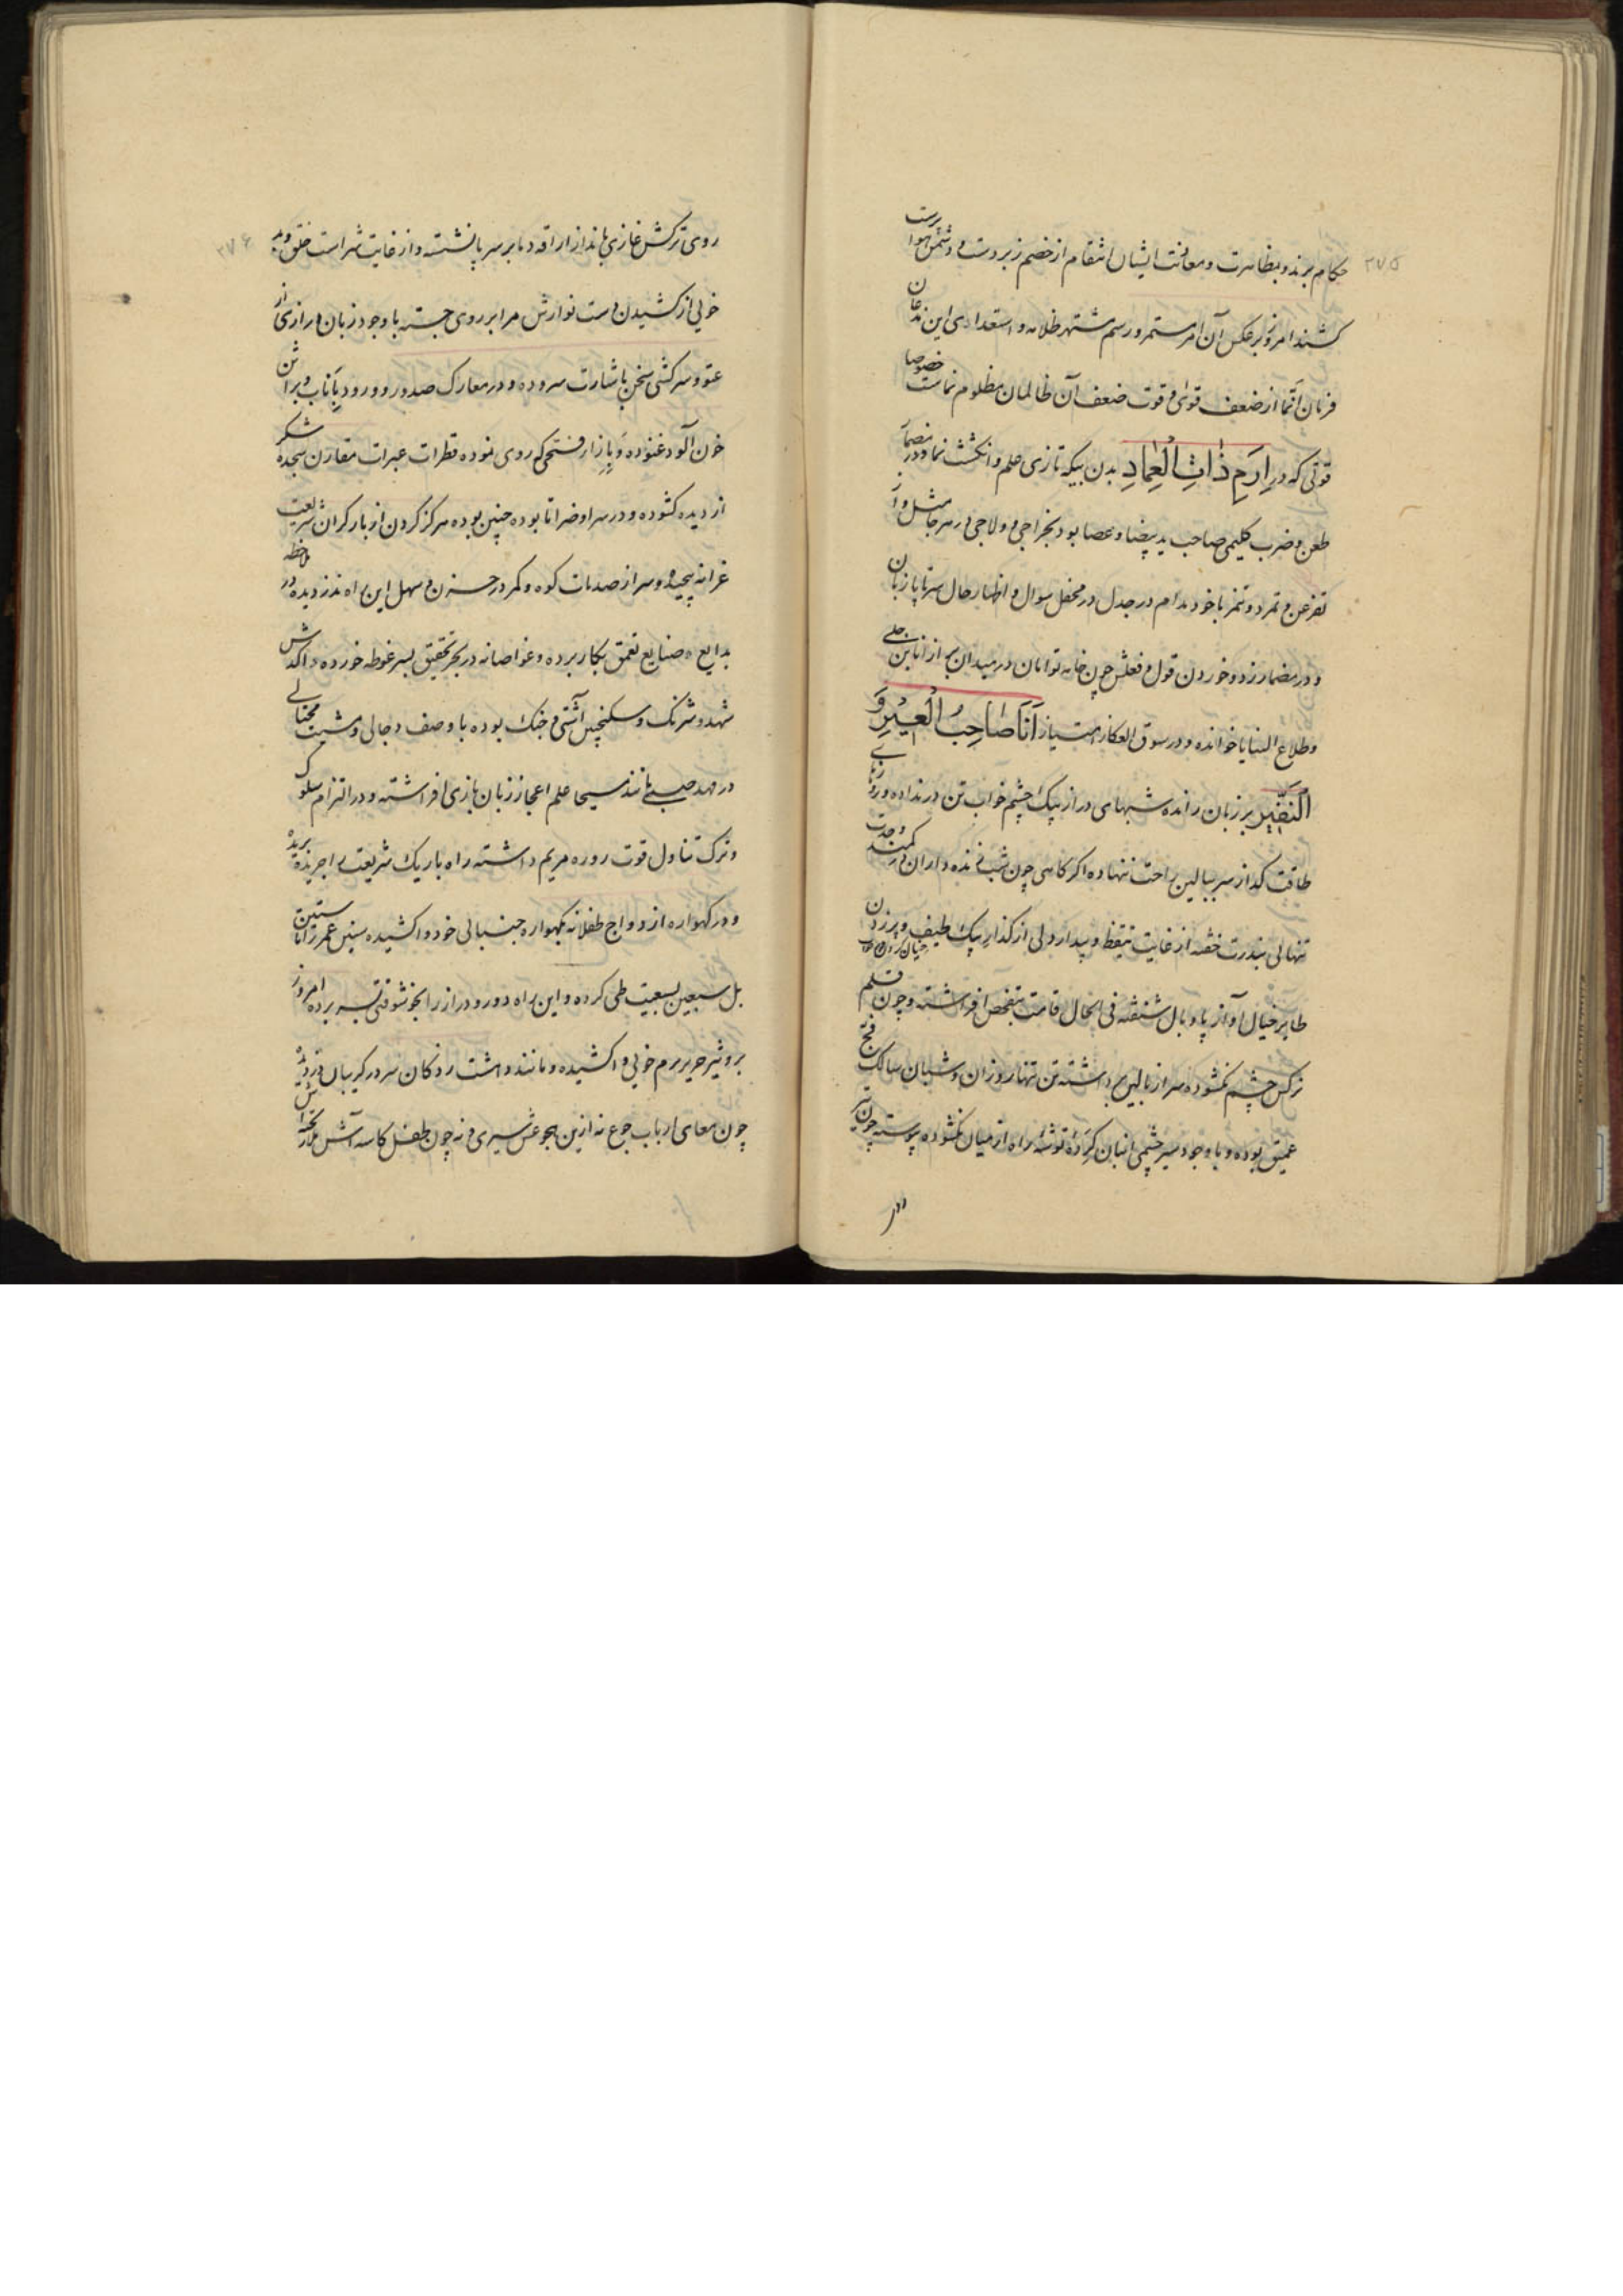 ۳۷۵
حکام برند و بمظاهرت و معاونت ایشان انتقام از خصم زبردست و دشمن هواپرست
کشند امروز برعکس آن امر مستمر و رسم مشتهر ظلامه و استعدادی این مدعان
فرمان اتما از ضعف قوی و قوت ضعف آن ظالمان مظلوم نماست خصوصا
قوتی که در اِرَمِ ذٰاتِ الْعِمٰادِ بدن بیکه تازی علم و انگشت نما و در مضمار
طعن و ضرب کلیمی صاحب ید بیضا و عصا بود بخراجی و ولاجی در هر جا مثل و از
تفرعن و تمرد و تنمر با خود مدام در جدل در محفل سوال و اظهار حال سرتاپا زبان
و در مضمار زد و خوردن قول و فعلش چون خامه توامان در میدان براز انا بن جلی
و طلاع الثنایا خوانده و در سوق العکاز امتیاز اَنَا صٰاحِبُ الْعیْرِ وَ
النَّفیٖرِ بر زبان رانده شبهای دراز بیک چشم خواب تن در نداده و روزهای
طاقت گداز سر ببالین راحت ننهاده اگر گاهی چون شب زنده داران در کمند وحدت
تنهائی بندرت خفته از غایت تیقظ و بیدار دلی از گذار پیک طیف و پر زدن
طایر خیال آواز پا و بال شنفته فی الحال قامت بتفحص افراشته و چون قلم
نرگس چشم نگشوده سر از بالین برداشته تن تنها روزان و شبان سالک فج
عمیق بوده و با وجود سیر چشمی انبان گرده توشه راه از میان نگشوده پیوسته چون تیر
۳۷۶
روی ترکش غازی بانداز اراقه دما بر سر پا نشسته و از غایت شراست خلق و بد
خویی از کشیدن دست نوازش مرا بر روی جسته با وجود زبان درازی از
عتو و سرکشی سخن باشارت سروده و در معارک صدور و ورود بانیاب و براثن
خون آلود غنوده و بازار فستحمکه روی نموده قطرات عبرات مقارن سجده شکر
از دیده گشوده و در سرا و ضرا تا بوده چنین بوده هرگز گردن از بار گران شریعت
غرا نه پیچیده و سر از صدمات کوه و کمر در حزن و سهل این راه ندزدیده در ملاحظه
بدایع و صنایع تعمق بکار برده و غواصانه در بحر تحقیق بسر غوطه خورده داکدش
شهد و شرنگ و سکنجبین آشتی و جنگ بوده با وصف دجالی و مشیت محتالی
در مهد صبی مانند مسیحا علم اعجاز زبان بازی افراشته و در التزام سلوک
و ترک تناول قوت روزه مریم داشته راه باریک شریعت را جریده بریده
و در گهواره ازدواج طفلانه بگهواره جنبانی خود واکشیده سنین عمر را تا ستین
بل سبعین بسعیت طی کرده و این راه دور و دراز را بخوشوقتی بسر برده امروز
بر وثیر حریر برم خوبی واکشیده و مانند دهشت زدگان سر در گریبان دزدیده
چون معای ارباب جوع نه ازین هجوعش سیری و نه چون طفل کاسه آشش